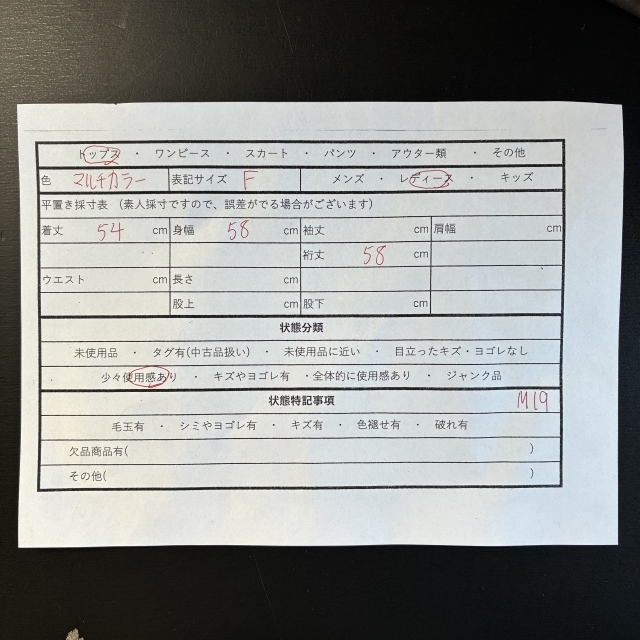 トップス ・ ワンピース ・ スカート ・ パンツ ・ アウター類 ・ その他
色 マルチカラー 表記サイズ F メンズ ・ レディース ・ キッズ
平置き採寸表 （素人採寸ですので、誤差がでる場合がございます）
着丈 54 cm 身幅 58 cm 袖丈 cm 肩幅 cm
裄丈 58 cm
ウエスト cm 長さ cm
股上 cm 股下 cm
状態分類
未使用品 ・ タグ有(中古品扱い) ・ 未使用品に近い ・ 目立ったキズ・ヨゴレなし
少々使用感あり ・ キズやヨゴレ有 ・全体的に使用感あり ・ ジャンク品
状態特記事項 M19
毛玉有 ・ シミやヨゴレ有 ・ キズ有 ・ 色褪せ有 ・ 破れ有
欠品商品有( )
その他( )